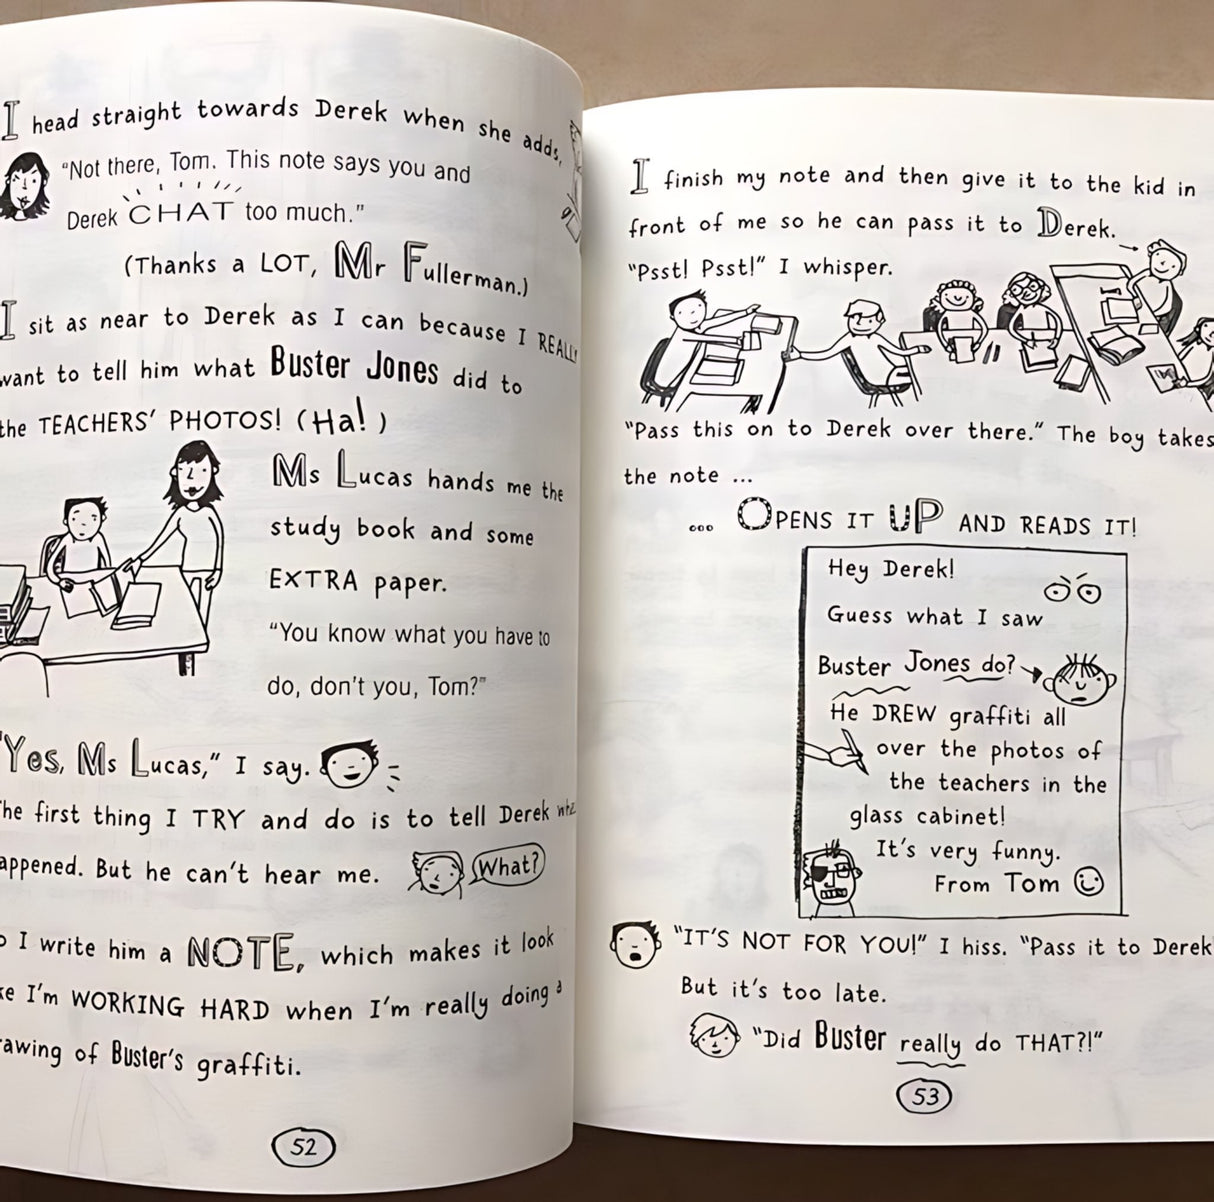 I head straight towards Derek when she adds,
"Not there, Tom. This note says you and
Derek CHAT too much."
(Thanks a LOT, Mr Fullerman.)
I sit as near to Derek as I can because I REALLY
want to tell him what Buster Jones did to
the TEACHERS' PHOTOS! (Ha!)
Ms Lucas hands me the
study book and some
EXTRA paper.
"You know what you have to
do, don't you, Tom?"
"Yes, Ms Lucas," I say.
The first thing I TRY and do is to tell Derek what
happened. But he can't hear me.
What?
So I write him a NOTE, which makes it look
like I'm WORKING HARD when I'm really doing a
drawing of Buster's graffiti.
52
I finish my note and then give it to the kid in
front of me so he can pass it to Derek.
"Psst! Psst!" I whisper.
"Pass this on to Derek over there." The boy takes
the note ...
... OPENS IT UP AND READS IT!
Hey Derek!
Guess what I saw
Buster Jones do?
He DREW graffiti all
over the photos of
the teachers in the
glass cabinet!
It's very funny.
From Tom
"IT'S NOT FOR YOU!" I hiss. "Pass it to Derek
But it's too late.
"Did Buster really do THAT?!"
53